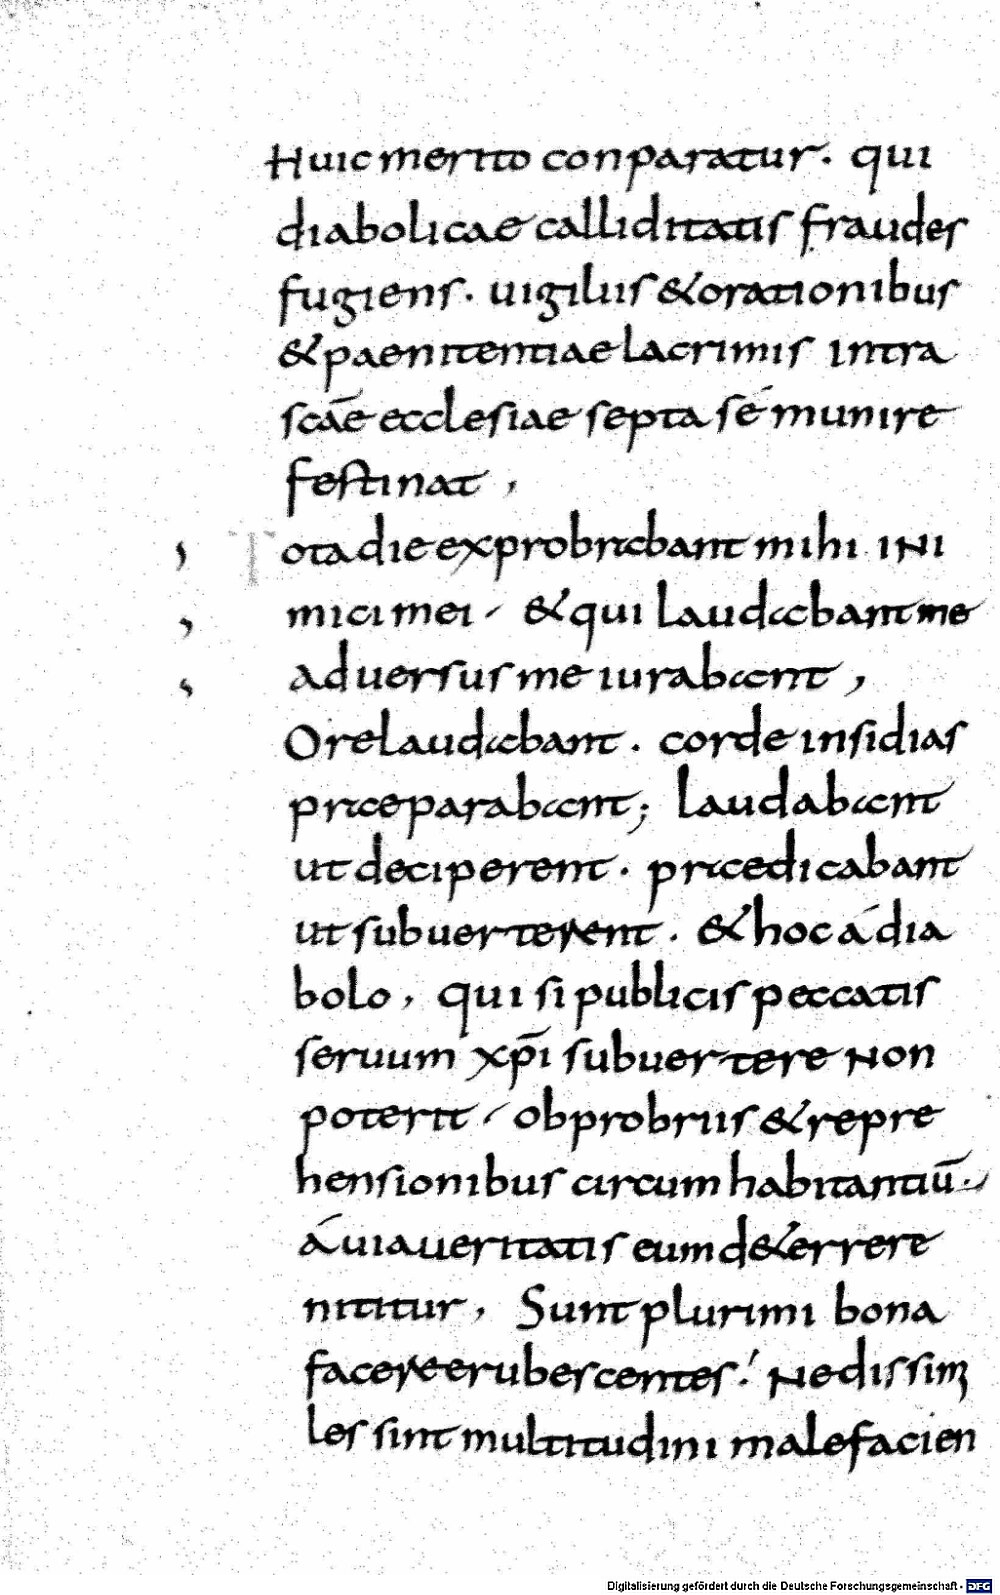 Huic merito conparatur. qui
diabolicae calliditatis fraudes
fugiens. uigiliis & orationibus
& paenitentiae lacrimis intra
scāe ecclesiae septa sé munire
festinat,
Tota die exprobrabant mihi ini
mici mei / & qui laudabant me
aduersus me iurabant,
Ore laudabant. corde insidias
praeparabant; laudabant
ut deciperent. praedicabant
ut subuerterent. & hoc á dia
bolo, qui si publicis peccatis
seruum xp̄i subuertere non
poterit / obprobriis & repre
hensionibus circum habitantiū./
á uia ueritatis eum d&errere
nititur, Sunt plurimi bona
facere erubescentes! Ne dissimi
les sint multitudini malefacien
Digitalisierung gefördert durch die Deutsche Forschungsgemeinschaft - DFG